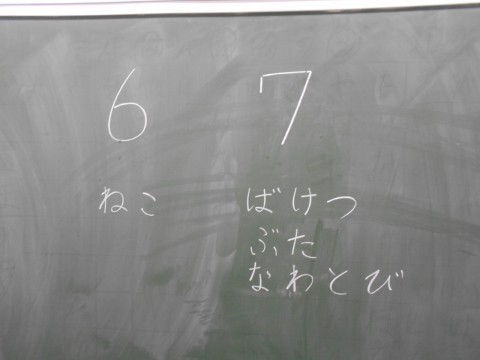 6 7
ねこ ばけつ
ぶた
なわとび